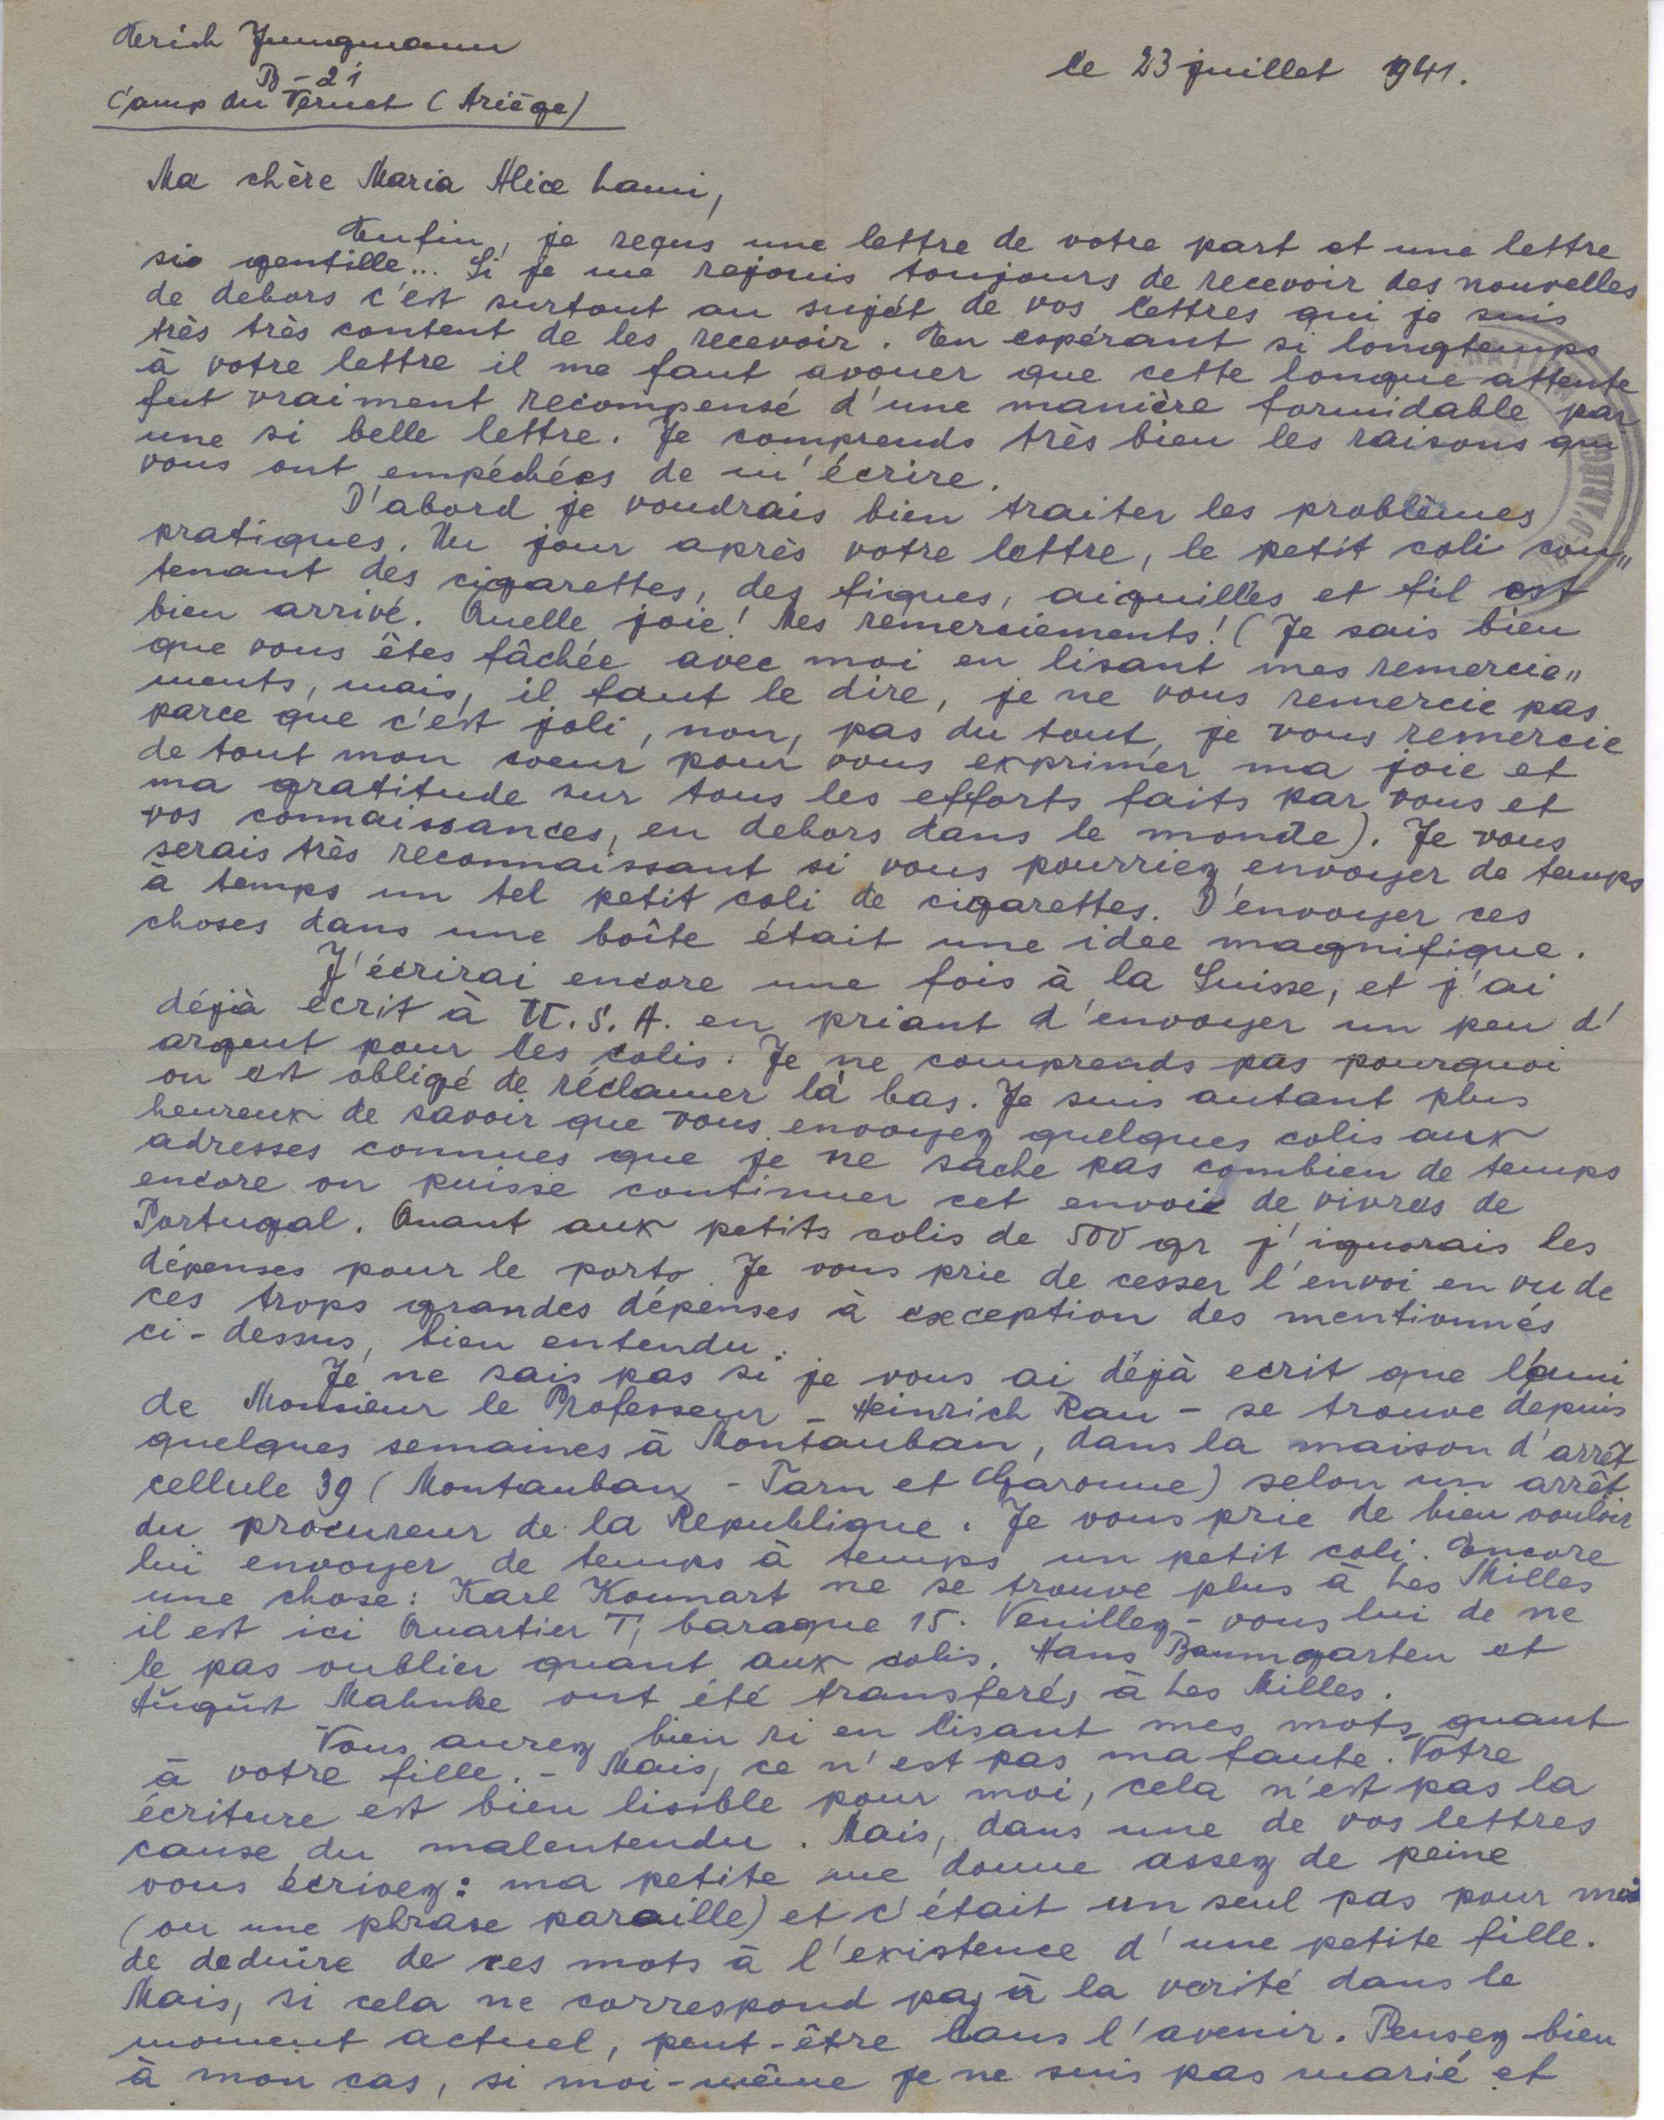 Erich Jungmann
B-21
Camp du Vernet (Ariège)
le 23 juillet 1941.
Ma chère Maria Alice Lami,
Enfin, je reçus une lettre de votre part et une lettre
si gentille... Si je me rejouis toujours de recevoir des nouvelles
de dehors c'est surtout au sujét de vos lettres qui je suis
très très content de les recevoir. En espérant si longtemps
à votre lettre il me faut avouer que cette longue attente
fut vraiment recompensé d'une manière formidable par
une si belle lettre. Je comprends très bien les raisons qui
vous ont empéchées de m'écrire.
D'abord je voudrais bien traiter les problèmes
pratiques. Un jour après votre lettre, le petit coli con"
tenant des cigarettes, des figues, aiguilles et fil est
bien arrivé. Quelle joie! Mes remerciements! (Je sais bien
que vous êtes fâchée avec moi en lisant mes remercie"
ments, mais, il faut le dire, je ne vous remercie pas
parce que c'est joli, non, pas du tout, je vous remercie
de tout mon coeur pour vous exprimer ma joie et
ma gratitude sur tous les efforts faits par vous et
vos connaissances, en dehors dans le monde). Je vous
serais très reconnaissant si vous pourriez envoyer de temps
à temps un tel petit coli de cigarettes. D'envoyer ces
choses dans une boîte était une idee magnifique.
J'écrirai encore une fois à la Suisse, et j'ai
déjà écrit à U.S.A. en priant d'envoyer un peu d'
argent pour les colis. Je ne comprends pas pourquoi
on est obligé de réclamer là bas. Je suis autant plus
heureux de savoir que vous envoyez quelques colis aux
adresses connues que je ne sache pas combien de temps
encore on puisse continuer cet envoie de vivres de
Portugal. Quant aux petits colis de 500 gr j'ignorais les
dépenses pour le porto. Je vous prie de cesser l'envoi en vu de
ces trops grandes dépenses à exception des mentionnés
ci-dessus, bien entendu.
Je ne sais pas si je vous ai déjà ecrit que l'ami
de Monsieur le Professeur - Heinrich Rau - se trouve depuis
quelques semaines à Montauban, dans la maison d'arrêt
cellule 39 (Montauban - Tarn et Garonne) selon un arrêt
du procureur de la Republique. Je vous prie de bien vouloir
lui envoyer de temps à temps un petit coli. Encore
une chose: Karl Kounart ne se trouve plus à Les Milles
il est ici Quartier T, baraque 15. Veuillez-vous lui de ne
le pas oublier quant aux colis. Hans Baumgarten et
August Mahnke ont été transferés à Les Milles.
Vous aurez bien ri en lisant mes mots quant
à votre fille. - Mais, ce n'est pas ma faute. Votre
écriture est bien lisible pour moi, cela n'est pas la
cause du malentendu. Mais, dans une de vos lettres
vous écrivez: ma petite me donne assez de peine
(ou une phrase paraille) et c'était un seul pas pour moi
de deduire de ces mots à l'existence d'une petite fille.
Mais, si cela ne correspond pas à la verité dans le
moment actuel, peut-être dans l'avenir. Pensez bien
à mon cas, si moi-même je ne suis pas marié et
D'ARIÈGE